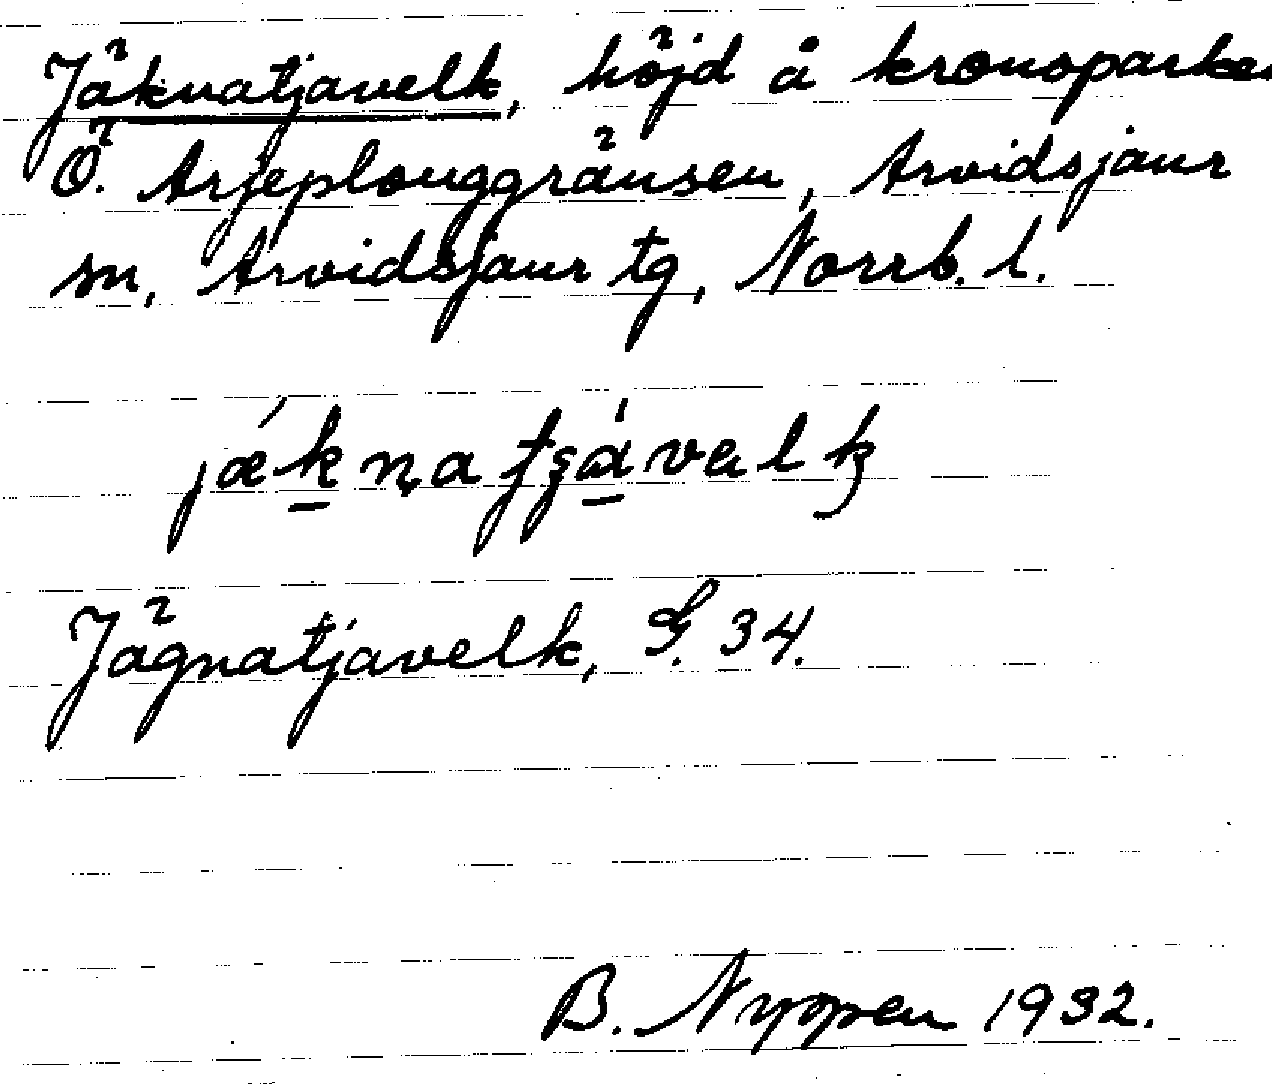 Jäknatjavelk, höjd å kronoparken
Ö. Arjeplouggränsen, Arvidsjaur
sn, Arvidsjaur tg, Norrb. l.
jǽknatʒávalk
Jägnatjavelk, G. 34.
B. Nyppen 1932.